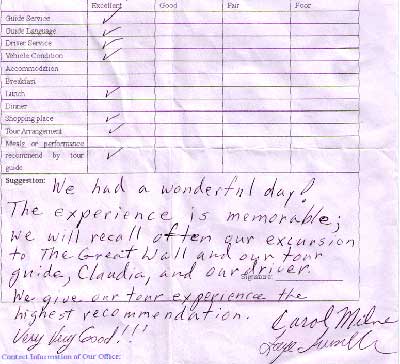 Excellent Good Fair Poor
Guide Service ✓
Guide Language ✓
Driver Service ✓
Vehicle Condition ✓
Accommodation
Breakfast
Lunch ✓
Dinner
Shopping place ✓
Tour Arrangement ✓
Meals or performance
recommend by tour ✓
guide
Suggestion: We had a wonderful day!
The experience is memorable;
we will recall often our excursion
to The Great Wall and our tour
guide, Claudia, and our driver.
Signature:
We give our tour experience the
highest recommendation.
Very Very Good!!!
Carol Milne
Contact Information of Our Office: